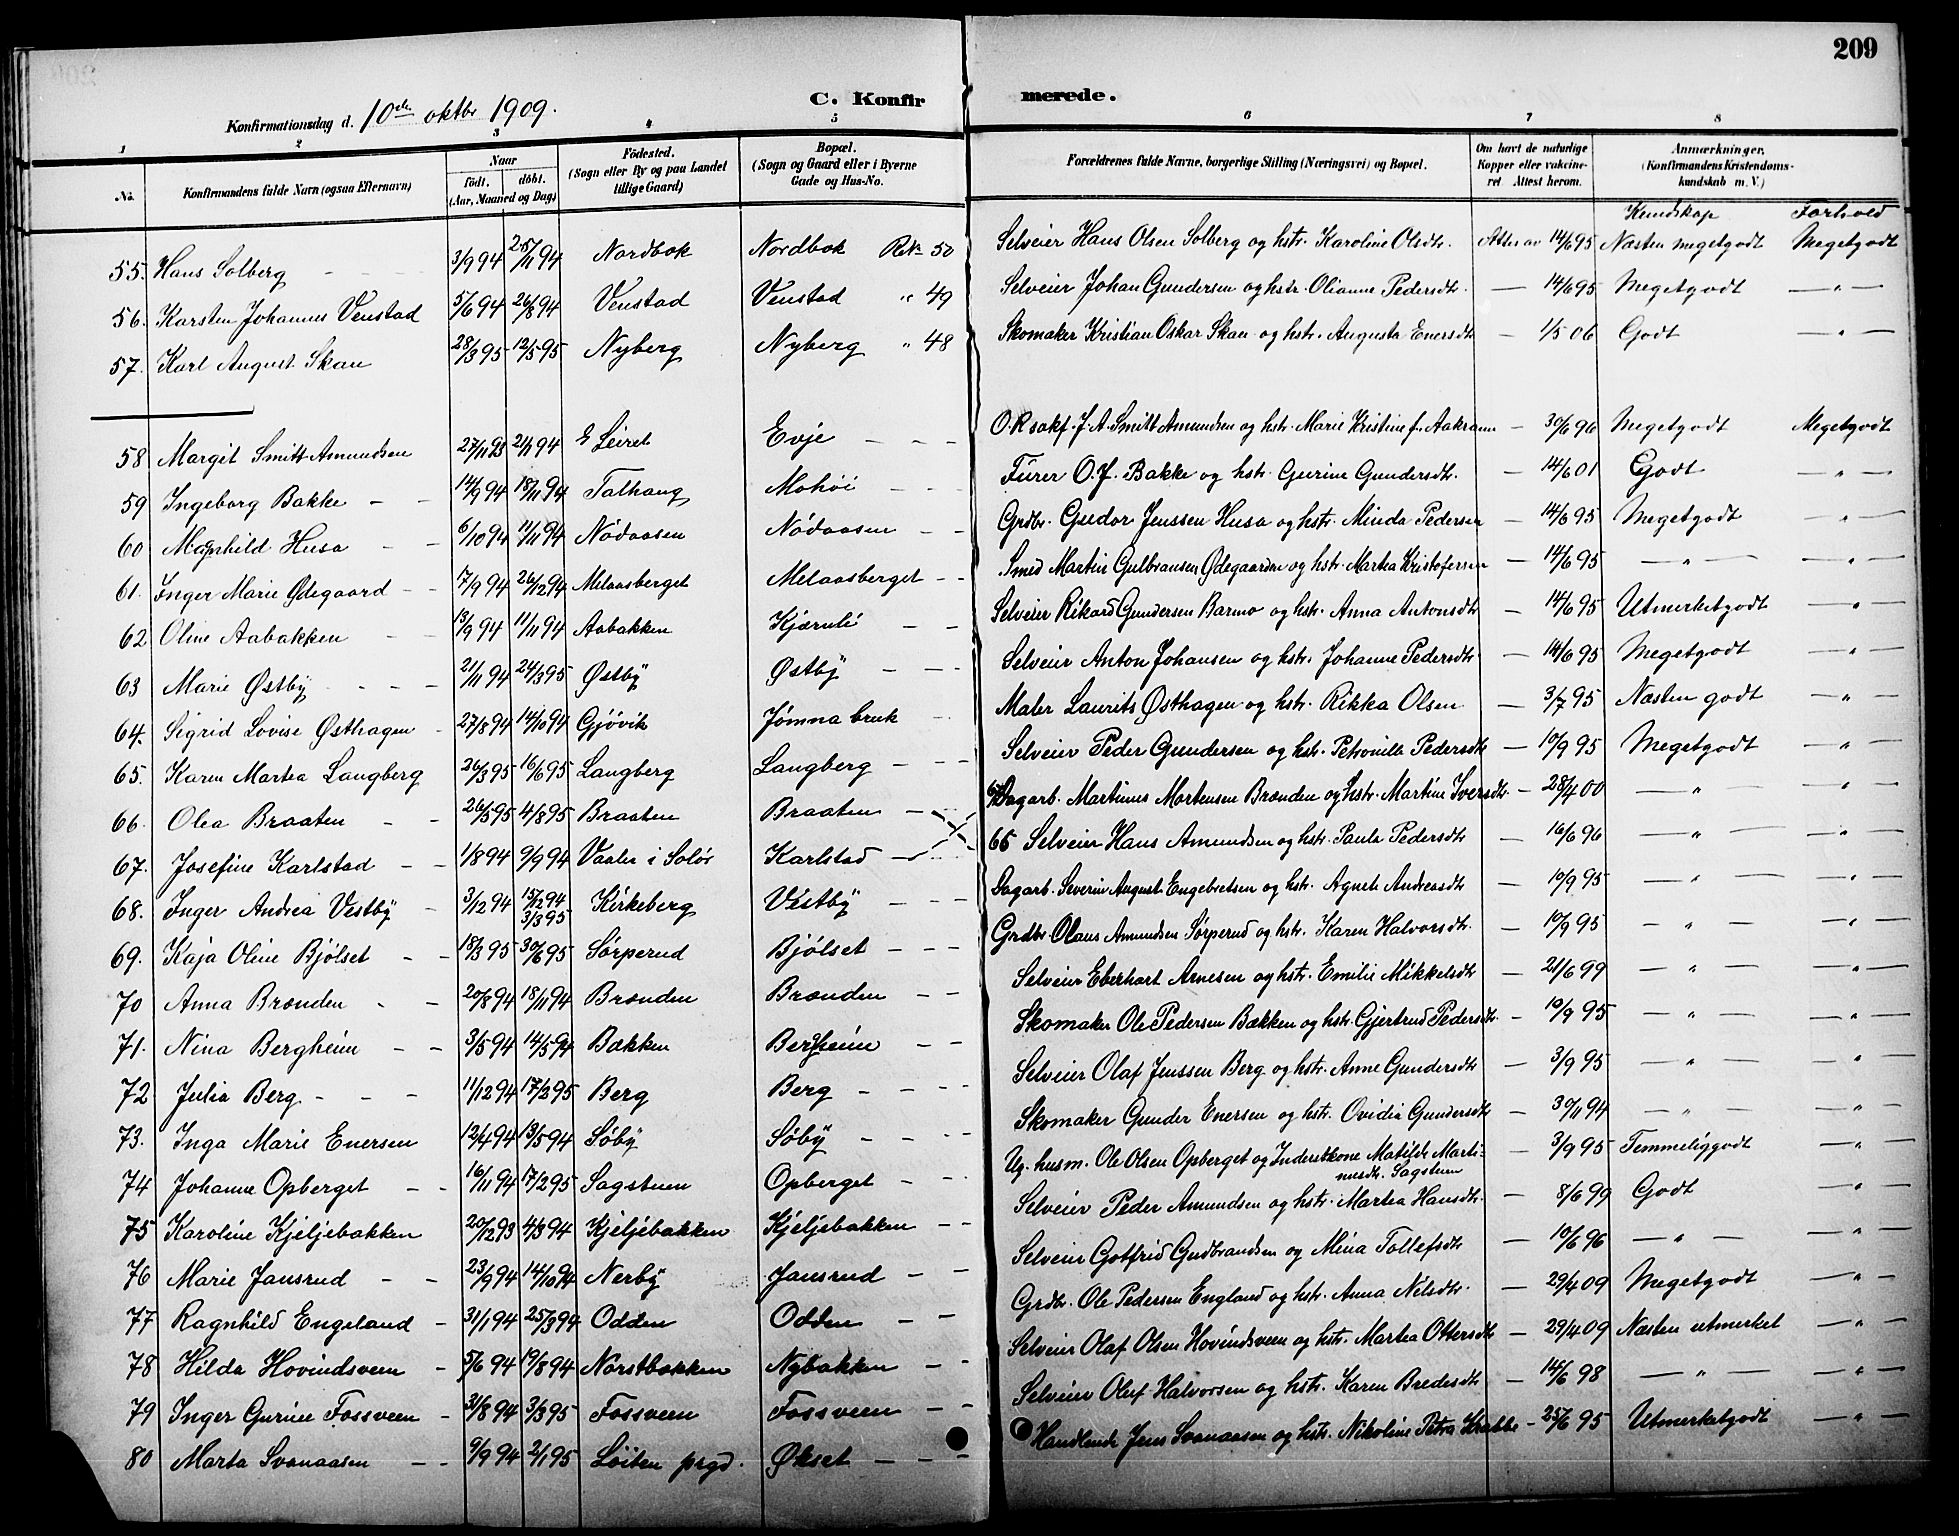 209
C. Konfirmerede.
Konfirmationsdag d. 10de oktbr 1909.
1 2 3 4 5 6 7 8
No. Konfirmandens fulde Navn (ogsaa Efternavn) Naar født, døbt. (Aar, Maaned og Dag) Fødested. (Sogn eller By og paa Landet tillige Gaard) Bopæl. (Sogn og Gaard eller i Byerne Gade og Hus-No. Forældrenes fulde Navne, borgerlige Stilling (Næringsvei) og Bopæl. Om havt de naturlige Kopper eller vakcineret Attest herom. Anmærkninger, (Konfirmandens Kristendomskundskab m. V.)
Kundskap Forhold
55. Hans Solberg 3/9 94 25/11 94 Nordbok Nordbok 50 Selveier Hans Olsen Solberg og hstr. Karoline Olsdtr. 14/6 95 Næsten megetgodt Megetgodt
56. Karsten Johannes Venstad 5/6 94 26/8 94 Venstad Venstad " 49 Selveier Johan Gundersen og hstr. Olianne Pedersdtr. — 14/6 95 Megetgodt — " —
57. Karl August Skau 28/3 95 12/5 95 Nyberg Nyberg " 48 Skomaker Kristian Oskar Skau og hstr. Augusta Enersdtr — 1/5 06 Godt — " —
58 Margit Smitt Amundsen 27/11 93 21/1 94 Leiret Evje O.R.sakf. J. A. Smitt Amundsen og hstr. Marie Kristine f. Aakrann — 30/6 96 Megetgodt Megetgodt
59 Ingeborg Bakke 14/9 94 18/11 94 Talhaug Mohöi Fürer O. J. Bakke og hstr. Gurine Gundersdtr. — 14/6 01 Godt — " —
60 Magnhild Husa 6/10 94 11/11 94 Nödaasen Nödaasen Grdbr. Gudor Jenssen Husa og hstr. Minda Pedersen — 14/6 95 Megetgodt — " —
61. Inger Marie Ødegaard 7/9 94 26/12 94 Melaasberget Melaasberget Smed Martin Gulbransen Ødegaarden og hstr. Martea Kristofersen — 14/6 95 — " — — " —
62 Oline Aabakken 13/9 94 11/11 94 Aabakken Kjærnli Selveier Rikard Gundersen Barmo og hstr. Anna Antonsdtr — 14/6 95 Utmerketgodt — " —
63 Marie Østby 2/11 94 24/3 95 Østby Østby Selveier Anton Johansen og hstr. Johanne Pedersdtr. — 14/6 95 Megetgodt — " —
64. Sigrid Lovise Østhagen 27/8 94 14/10 94 Gjøvik Jömna bruk Maler Laurits Østhagen og hstr. Rikka Olsen — 3/7 95 Næsten godt — " —
65. Karen Martea Langberg 26/3 95 16/6 95 Langberg Langberg Selveier Peder Gundersen og hstr. Petronille Pedersdtr — 10/9 95 Megetgodt — " —
66. Olea Braaten 26/5 95 4/8 95 Braaten Braaten Dagarb. Martinus Mortensen Brænden og hstr. Martine Iversdtr. — 28/4 00 — " — — " —
67. Josefine Karlstad 1/8 94 9/9 94 Vaaler i Solör Karlstad 66 Selveier Hans Amundsen og hstr. Paula Pedersdtr — 16/6 96 — " — — " —
68. Inger Andrea Vestby 3/12 94 15/12 94 3/3 95 Kirkeberg Vestby Dagarb. Severin August Engebretsen og hstr. Agnete Andreasdtr — 10/9 95 — " — — " —
69. Kaja Oline Bjölset 18/3 95 30/6 95 Sörperud Bjölset Grdbr. Olaus Amundsen Sörperud og hstr. Karen Halvorsdtr. — 10/9 95 — " — — " —
70 Anna Brænden 20/8 94 18/11 94 Brænden Brænden Selveier Eberhart Arnesen og hstr. Emilie Mikkelsdtr — 21/6 99 — " — — " —
71. Nina Bergheim 3/5 94 14/5 94 Bakken Bergheim Skomaker Ole Pedersen Bækken og hstr. Gjertrud Pedersdtr. — 10/9 95 — " — — " —
72 Julia Berg 11/12 94 17/2 95 Berg Berg Selveier Olaf Jenssen Berg og hstr. Anne Gundersdtr — 3/9 95 — " — — " —
73. Inga Marie Enersen 12/4 94 13/5 94 Söby Söby Skomaker Gunder Enersen og hstr. Ovidia Gundersdtr — 30/11 94 — " — — " —
74 Johanne Opberget 16/11 94 17/2 95 Sagstuen Opberget Ug. husm. Ole Olsen Opberget og Inderstkone Matilde Martinusdtr. Sagstuen — 3/9 95 Temmeliggodt — " —
75 Karoline Kjeljebakken 20/12 93 4/3 94 Kjeljebakken Kjeljebakken Selveier Peder Amundsen og hstr. Martea Hansdtr. — 8/6 99 Godt — " —
76 Marie Jansrud 23/9 94 14/10 94 Nerby Jansrud Selveier Gotfrid Gudbrandsen og Mina Tollefsdtr — 10/6 96 — " — — " —
77 Ragnhild Engeland 31/1 94 25/3 94 Odden Odden Grdbr. Ole Pedersen England og hstr. Anna Nilsdtr. — 29/4 09 Megetgodt — " —
78 Hilda Hovindsveen 5/6 94 19/8 94 Norstbakken Nybakken Selveier Olaf Olsen Hovindsveen og hstr. Martea Ottersdtr — 29/4 09 Næsten utmerket — " —
79 Inger Gurine Fossveen 31/8 94 3/3 95 Fossveen Fossveen Selveier Oluf Halvorsen og hstr. Karen Bredesdtr — 14/6 98 — " — — " —
80 Marta Svanaasen 9/9 94 2/1 95 Löiten prgd. Økset Handlende Jens Svanaasen og hstr. Nikoline Petra Krabbe — 25/6 95 Utmerketgodt — " —